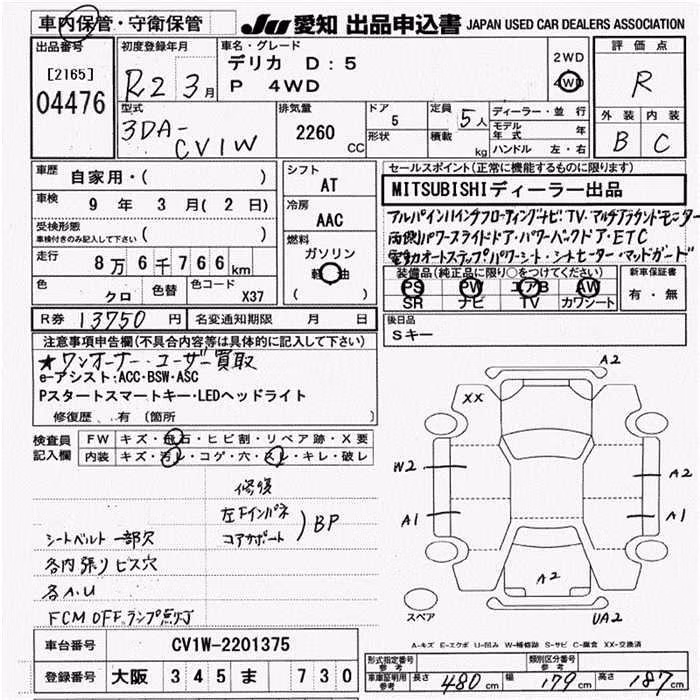 車内保管・守衛保管
JU 愛知 出品申込書 JAPAN USED CAR DEALERS ASSOCIATION
出品番号
[2165]
04476
初度登録年月
R2 3月
車名・グレード
デリカ D:5
P 4WD
2WD
4WD
評価点
R
外装 内装
B C
型式
3DA-
CV1W
排気量
2260
CC
ドア
5
形状
定員
5人
積載
kg
ディーラー・並行
モデル
年式 年
ハンドル 左・右
車歴
自家用・( )
車検
9 年 3 月(2 日)
受検形態
車検付きのみ記入して下さい ( )
走行
8万6千766km
色
クロ
色替
色コード
X37
シフト
AT
冷房
AAC
燃料
ガソリン
軽油
( )
セールスポイント(正常に機能するものに限ります)
MITSUBISHIディーラー出品
アルパイン11インチフローティングナビ・TV・マルチアラウンドモニター
両側パワースライドドア・パワーバックドア・ETC
電動オートステップ・パワーシート・シートヒーター・マッドガード
装備品(純正品に限り○をつけてください)
PS PW エアB AW
SR ナビ TV カワシート
新車保証書
有・無
R券 13750円
名変通知期限 月 日
後日品
Sキー
注意事項申告欄(不具合内容等は具体的に記入して下さい)
★ワンオーナー・ユーザー買取
e-アシスト:ACC・BSW・ASC
Pスタートスマートキー・LEDヘッドライト
修復歴 有 (箇所 )
検査員
記入欄
FW キズ・飛石・ヒビ割・リペア跡・X要
内装 キズ・汚レ・コゲ・穴・スレ・キレ・破レ
修復
左Fインパネ
コアサポート
)BP
シートベルト一部欠
各内張りビス穴
各A.U
FCM OFF ランプ点灯
A2
XX
W2
A2
A1
A1
A2
スペア
UA2
A-キズ E-エクボ U-凹み W-補修跡 S-サビ C-腐食 XX-交換済
車台番号
CV1W-2201375
登録番号
大阪 345 ま 730
形式指定番号
参考
類別区分番号
参考
車庫証明用
参考
長さ 480 cm 幅 179 cm 高さ 187 cm